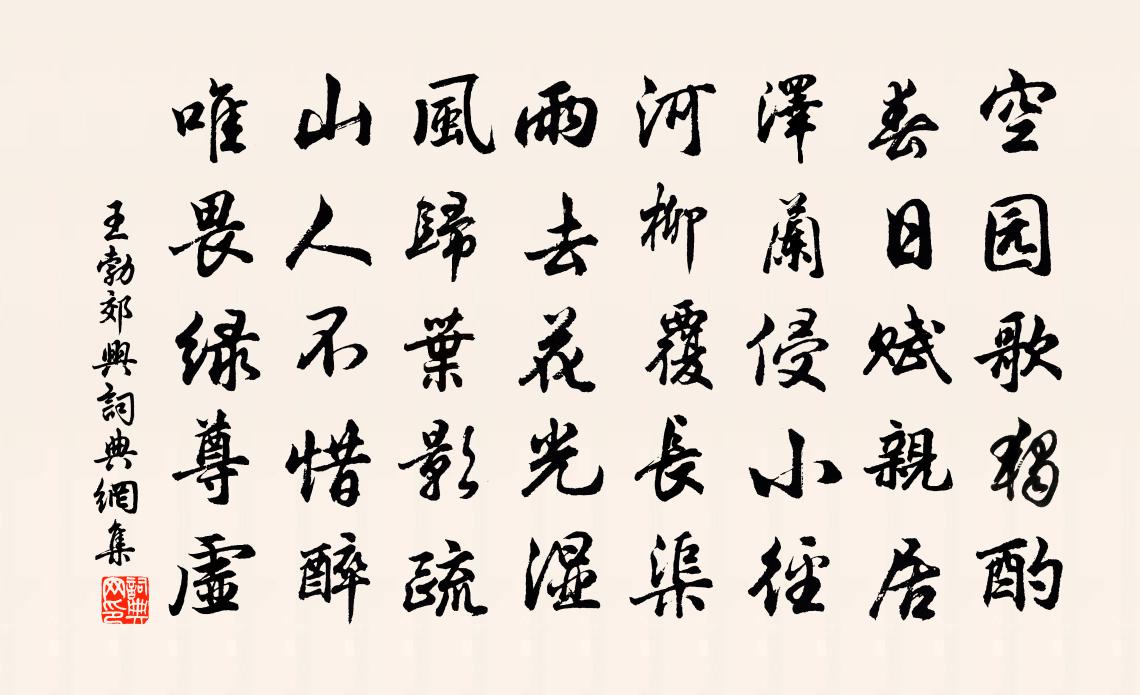 空园歌獨酌
春日賦親居
澤蘭侵小徑
河柳覆長渠
雨去花光濕
風歸葉影疏
山人不惜醉
唯畏緑尊虛
王勃郊興詞典網集
詞典网印